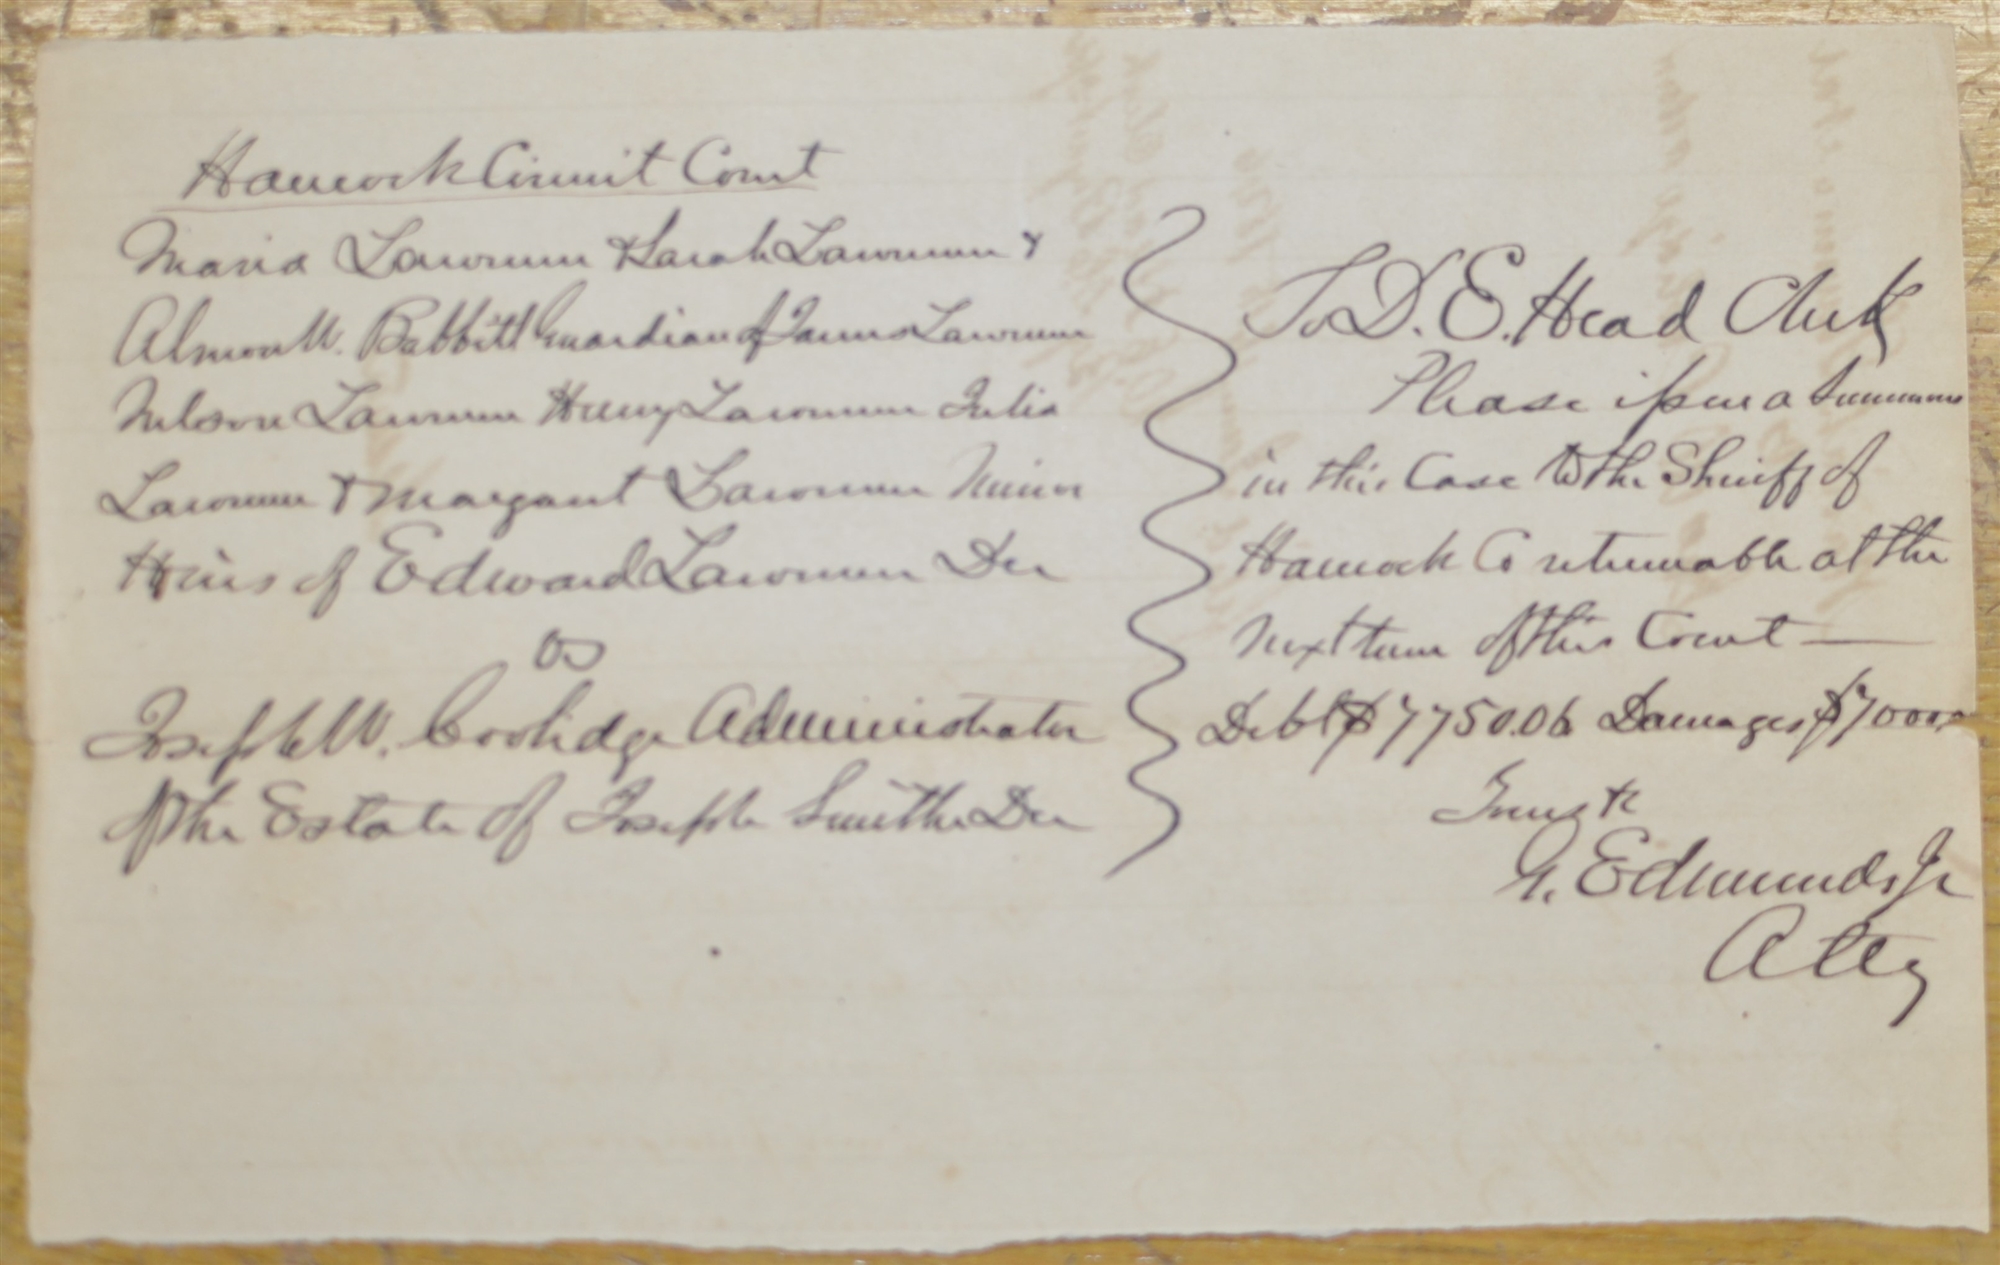 Hancock Circuit Court
Maria Lawrence & Sarah Lawrence &
Almon W. Babbitt Guardian of James Lawrence
Nelson Lawrence Henry Lawrence Julia
Lawrence & Margaret Lawrence Minor
Heirs of Edward Lawrence Dec
vs
Joseph W. Coolidge Administrator
of the Estate of Joseph Smith Dec
To D. E. Head Clerk
Please issue a Summons
in this Case to the Sheriff of
Hancock Co returnable at the
next term of this Court —
Debt $7750.06 Damages $7000
Yours &c
G. Edmunds Jr
Atty